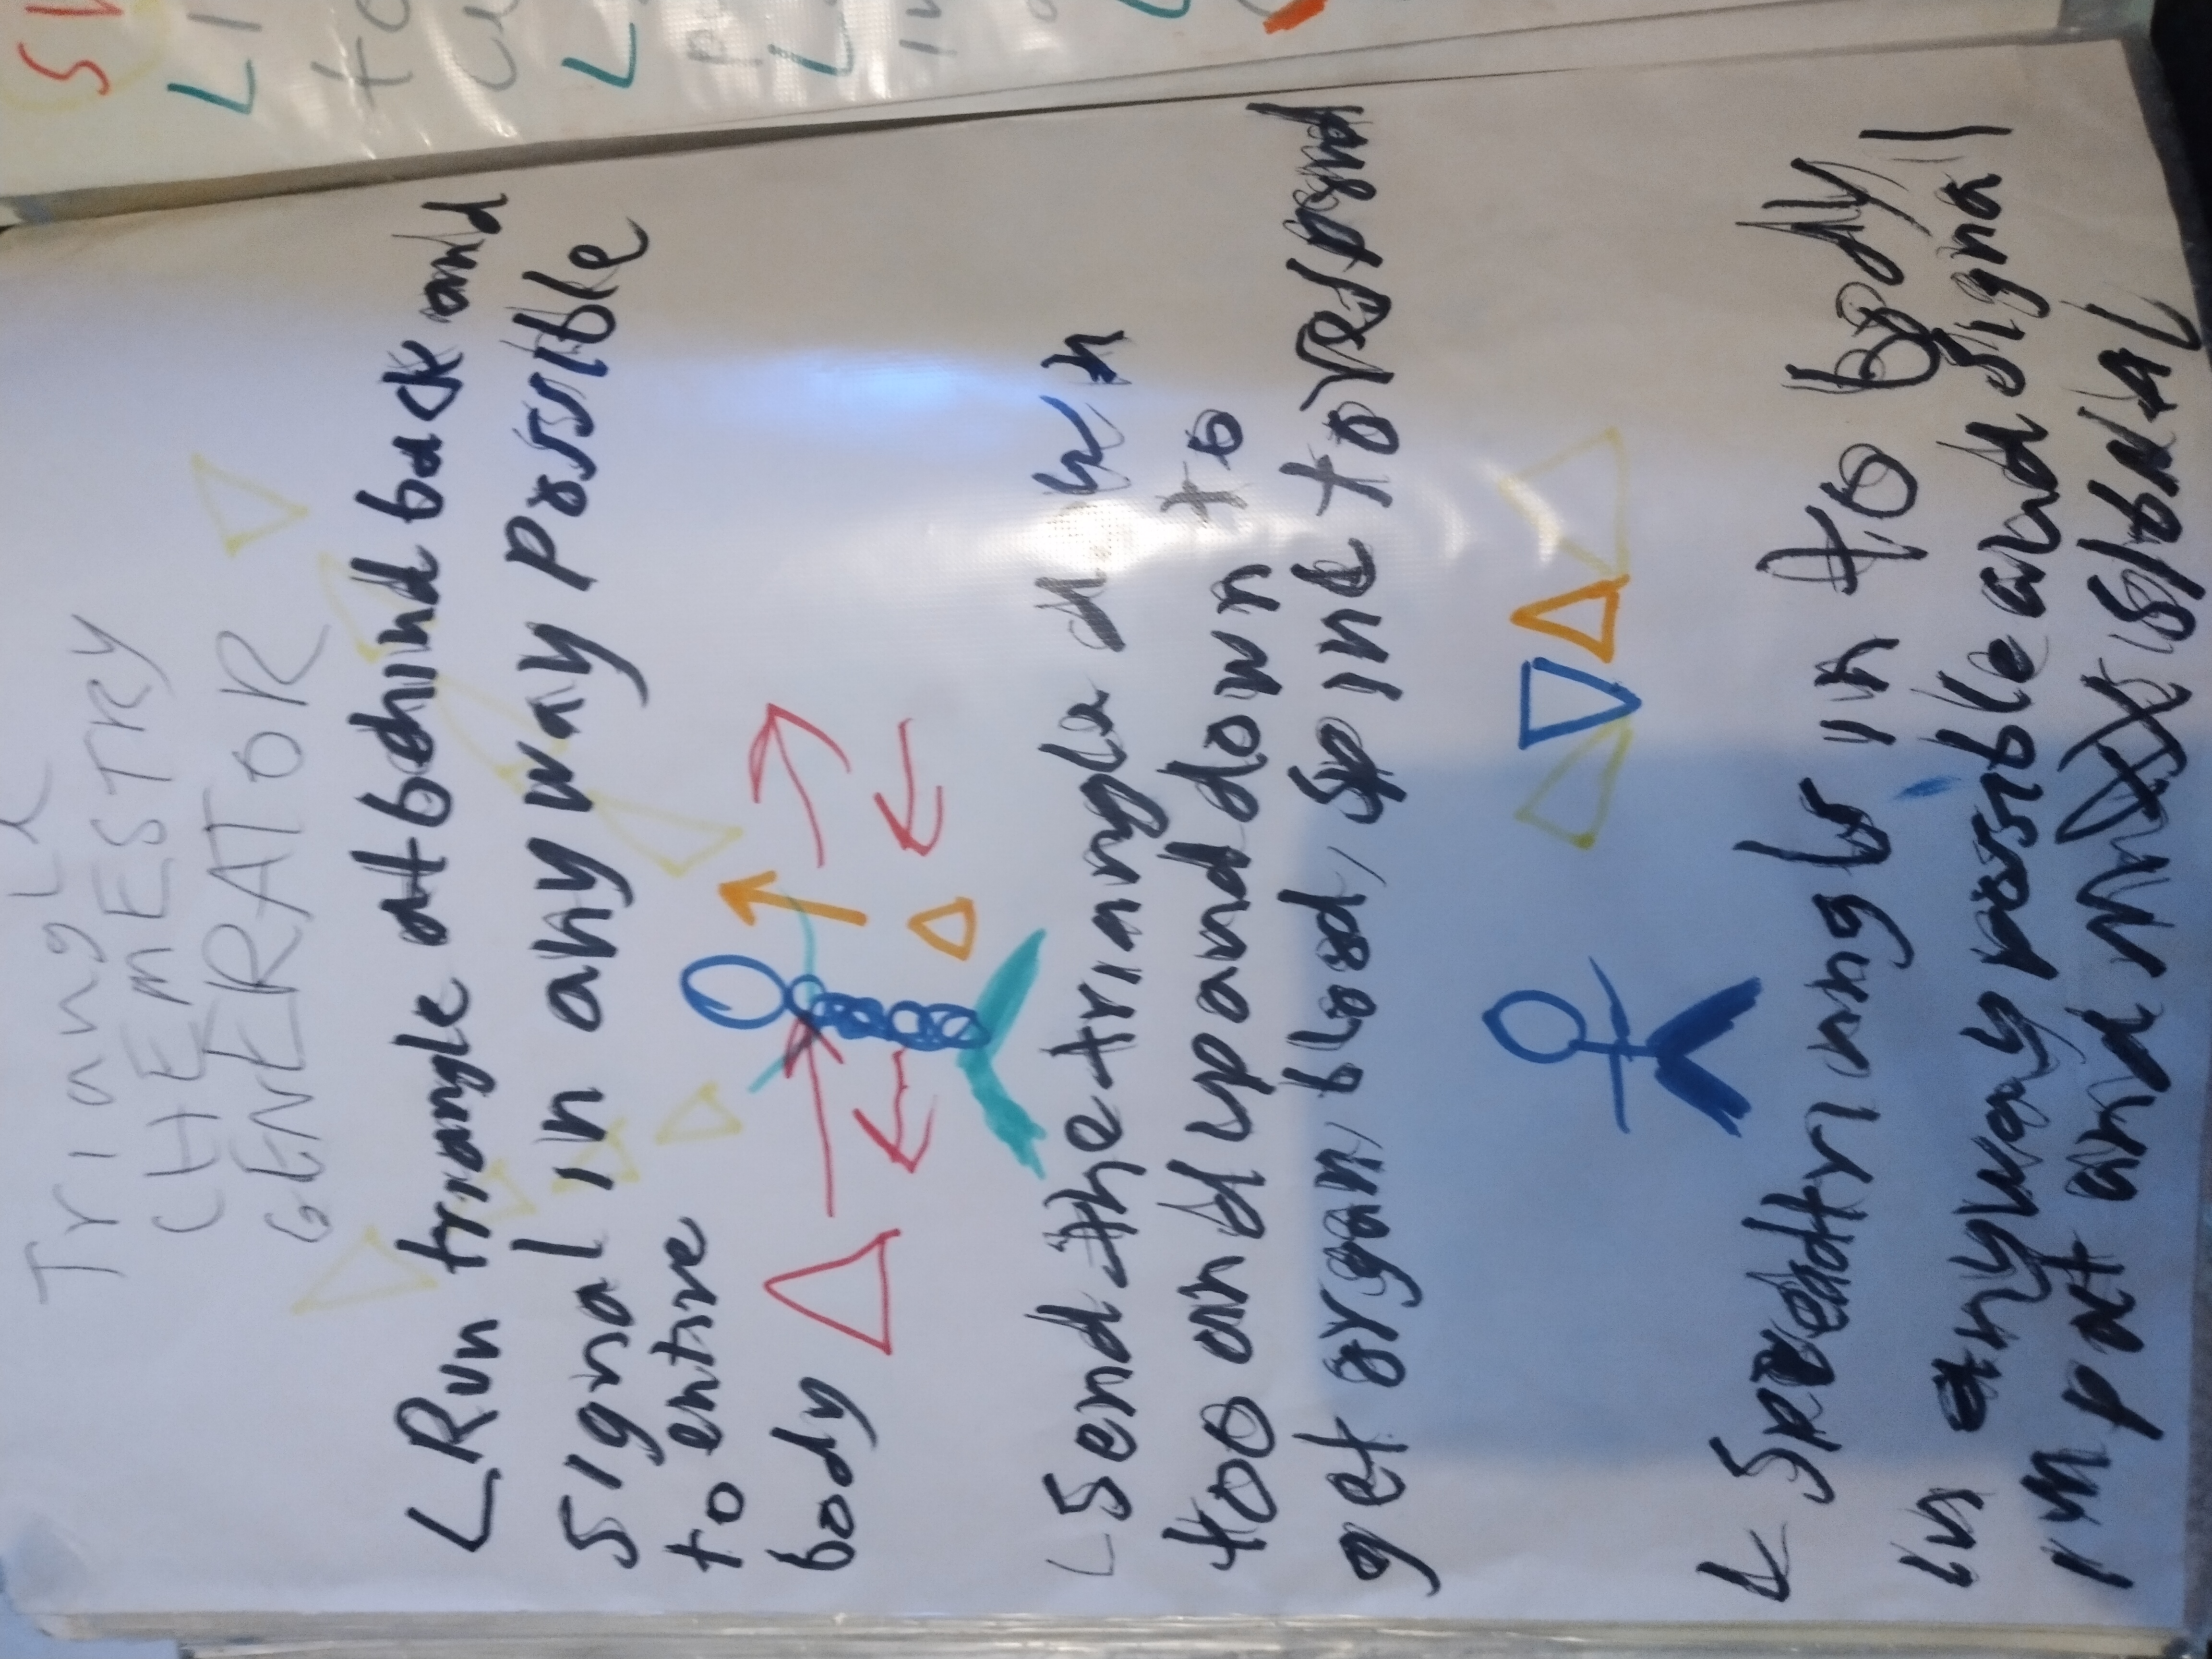 Triangle
CHEMESTRY
GENERATOR
L Run triangle at behind back and
signal in any way possible
to entire
body
L Send the triangle down
too and up and down to
get organ, blood, spine to
L Spread triangls in to body
in anyway possible and signal
im pat and mix